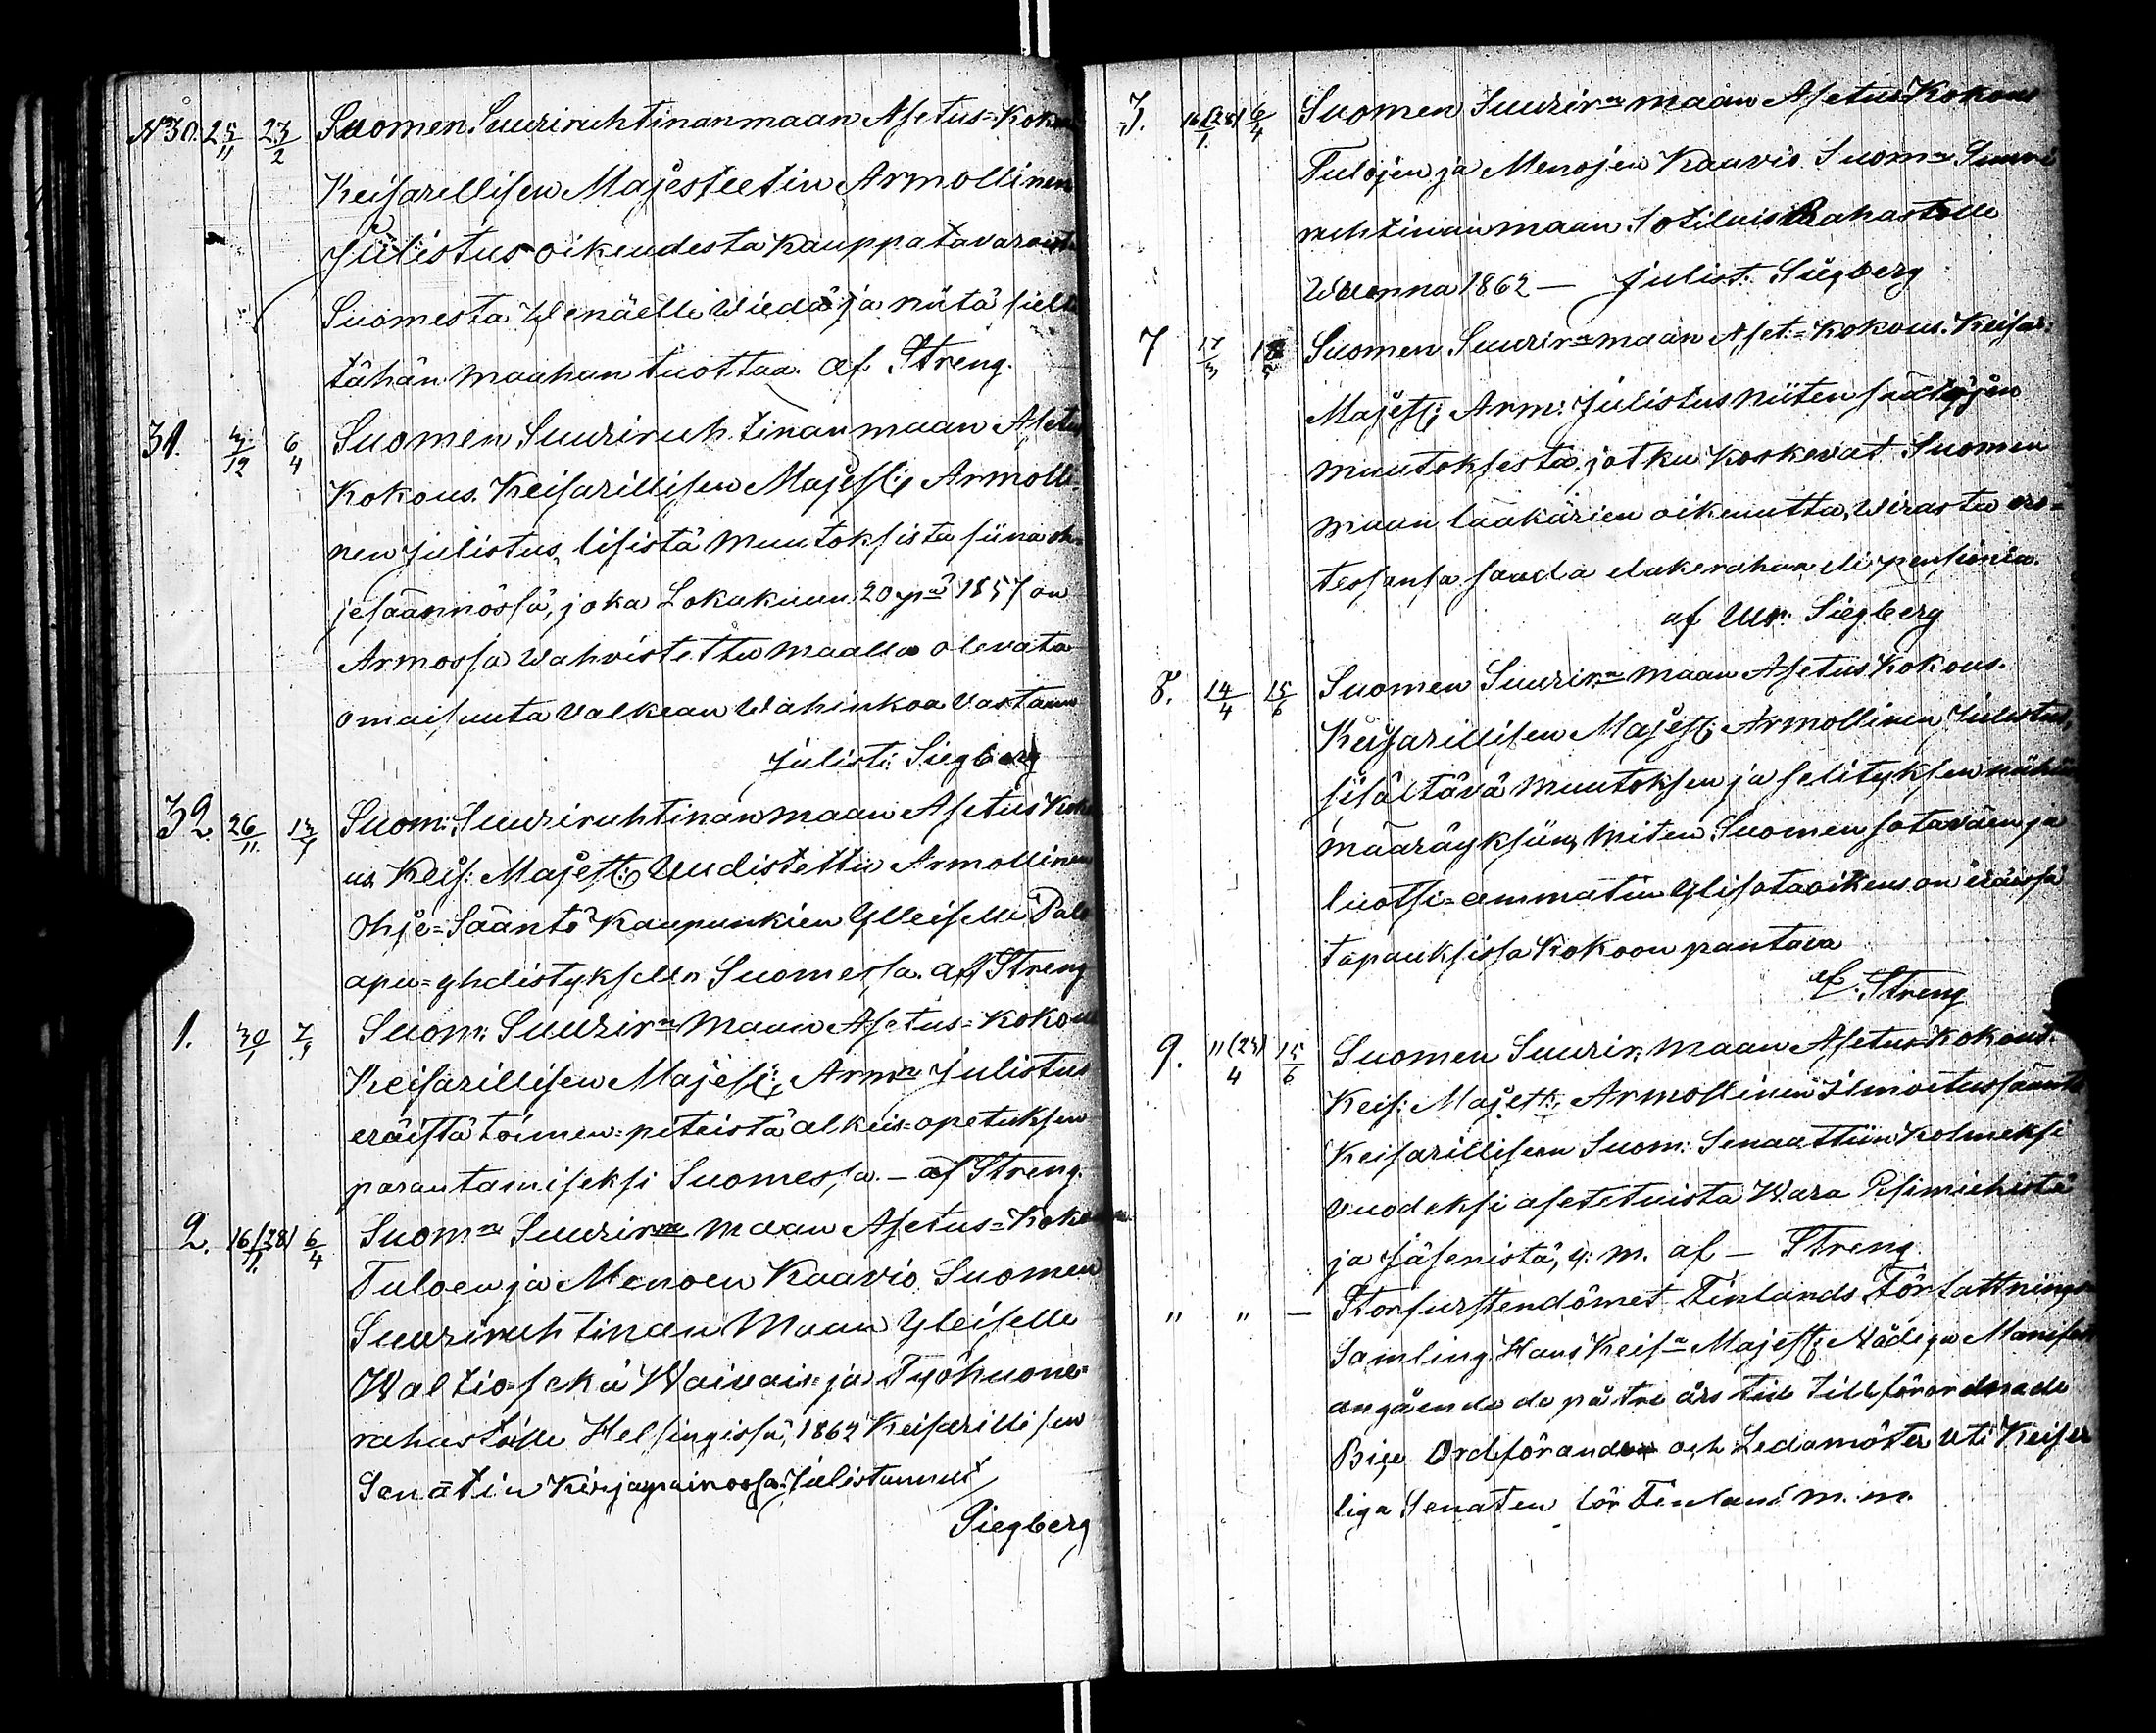 N 30. 25/11 23/2 Suomen Suuriruhtinanmaan Asetus=Kokous
Keisarillisen Majesteetin Armollinen
Julistus oikeudesta Kauppatavaroita
Suomesta Wenäelle Wiedä ja niitä sieltä
tähän maahan tuottaa. af Streng.
31. 4/12 6/4 Suomen Suuriruhtinanmaan Asetus
Kokous. Keisarillisen Majest:s Armolli-
nen Julistus, lisistä Muutoksista siinä oh-
jesäännössä, joka Lokakuun 20 pnä 1857 on
Armossa Wahvistettu maalla olevata
omaisuuta Valkean Wahinkoa Vastaan
Julisti: Siegberg
32 26/11 Suom: Suuriruhtinanmaan Asetus Koko
us. Keis: Majest: Uudistettu Armollinen
Ohje=Sääntö Kaupunkien Ylleiselle Palo
apu=yhdistykselle Suomessa. af Streng
1. 30/1 7/4 Suom: Suurirn Maan Asetus=Kokous
Keisarillisen Majest: Armn Julistus
eräistä toimen=piteistä alkeis=opetuksen
parantamiseksi Suomessa. – af Streng.
2. 16/(28)/1 6/4 Suomn Suurirn maan Asetus=Kokous
Tuloen ja Menoen Kaavio Suomen
Suuriruhtinan Maan Yleiselle
Waltio=sekä Waivais= ja Työhuone=
rahastoille Helsingissä, 1862 Keisarillisen
Senatin Kirjapainossa: Julistannut
Siegberg
3. 16(28)/1 6/4 Suomen Suurirn maan Asetus Kokous
Tulojen ja Menojen Kaavio Suomn Suuri
ruhtinanmaan Sotilais Rahastolle
Wuonna 1862 — Julist: Siegberg
7 18/5 Suomen Suurirn maan Aset=Kokous. Keisar:
Majest: Arm: Julistus Niiten säätyjen
muutoksesta, jotka Koskevat Suomen
maan lääkärien oikeutta, Wirasta ero=
tessansa saada elakerahan eli pensionia.
af Siegberg
8. 14/4 15/6 Suomen Suurirn maan Asetus Kokous.
Keisarillisen Majest: Armollinen Julistus,
sisältävä Muutoksen ja selityksen niihin
määräyksiin, Miten Suomen sotaväen ja
luotsi=ammatin Ylisotaoikeus on eräissä
tapauksissa Kokoon pantava
af. Streng
9. 11(23)/4 15/6 Suomen Suurir: maan Asetus Kokous.
Keis: Majest: Armollinen Ilmoitussääntö
Keisarilliseen Suom: Senaattiin Kolmeksi
vuodeksi asetetuista Wara Esimiehistä
ja Jäsenistä, y: m. af — Streng
" " — Storfurstendömet Finlands Författnings
Samling. Hans Keisn Majest: Nådiga Manifest
angående de på tre års tid tillförordnade
Vice Ordförande och Ledamöter uti Kejser
liga Senaten för Finland m. m.